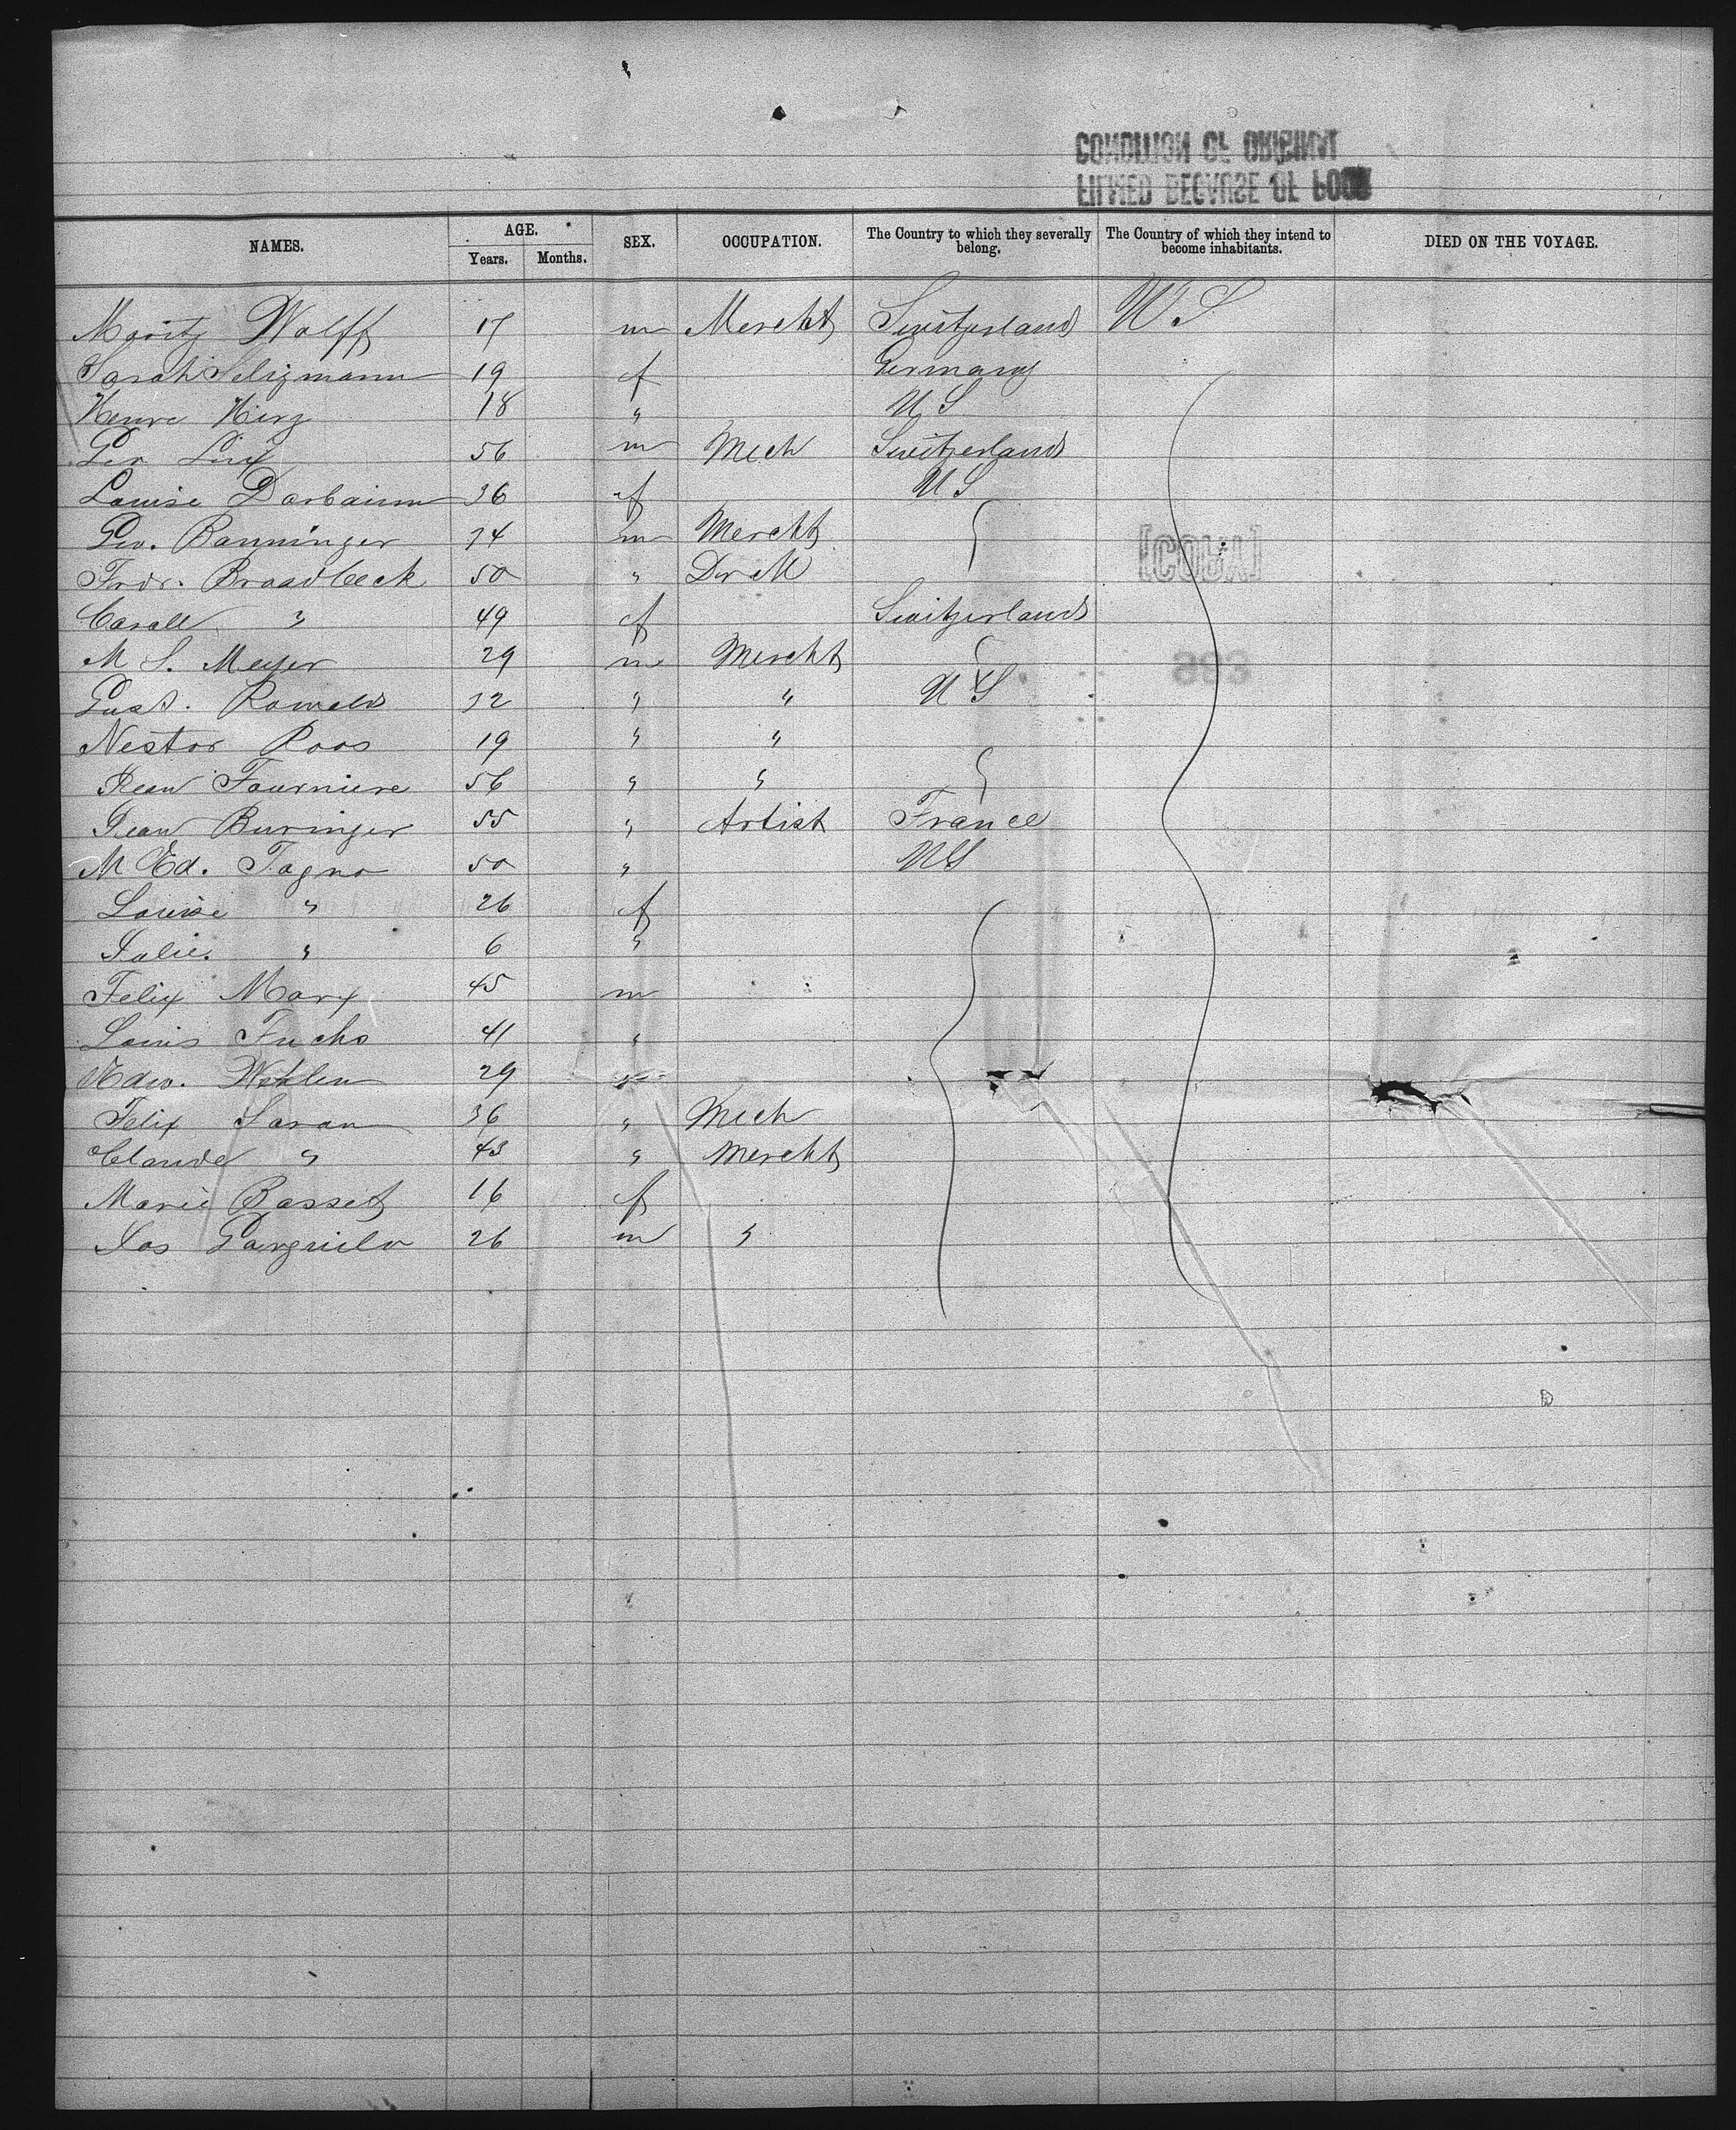 CONDITION OF ORIGINAL
FILMED BECAUSE OF POOR
NAMES. AGE. Years. Months. SEX. OCCUPATION. The Country to which they severally belong. The Country of which they intend to become inhabitants. DIED ON THE VOYAGE.
Moritz Wolff 17 m Mercht Switzerland U S
Sarah Seligmann 19 f Germany
Henre Herz 18 " U S
56 m Mech Switzerland
Louise Darbainn 36 f U S
Geo. Banninger 34 m Mercht
Fredr. Broadbeck 50 "
49 f Switzerland
M S. Meyer 29 m Mercht
Gust. Romeld 32 " " U S
Nestor Roos 19 " "
Jean Fourniere 56 " "
Jean Buringer 55 " Artist France
M Ed. Tagno 50 " U S
Louise " 26 f
Julie. " 6 "
Felix Marx 45 m
Louis Fuchs 41 "
Edw. Wohlen 29 "
Felix Saran 36 " Mech
Claude " 43 " Mercht
Marie Basset 16 f
Jos Garguilo 26 m "